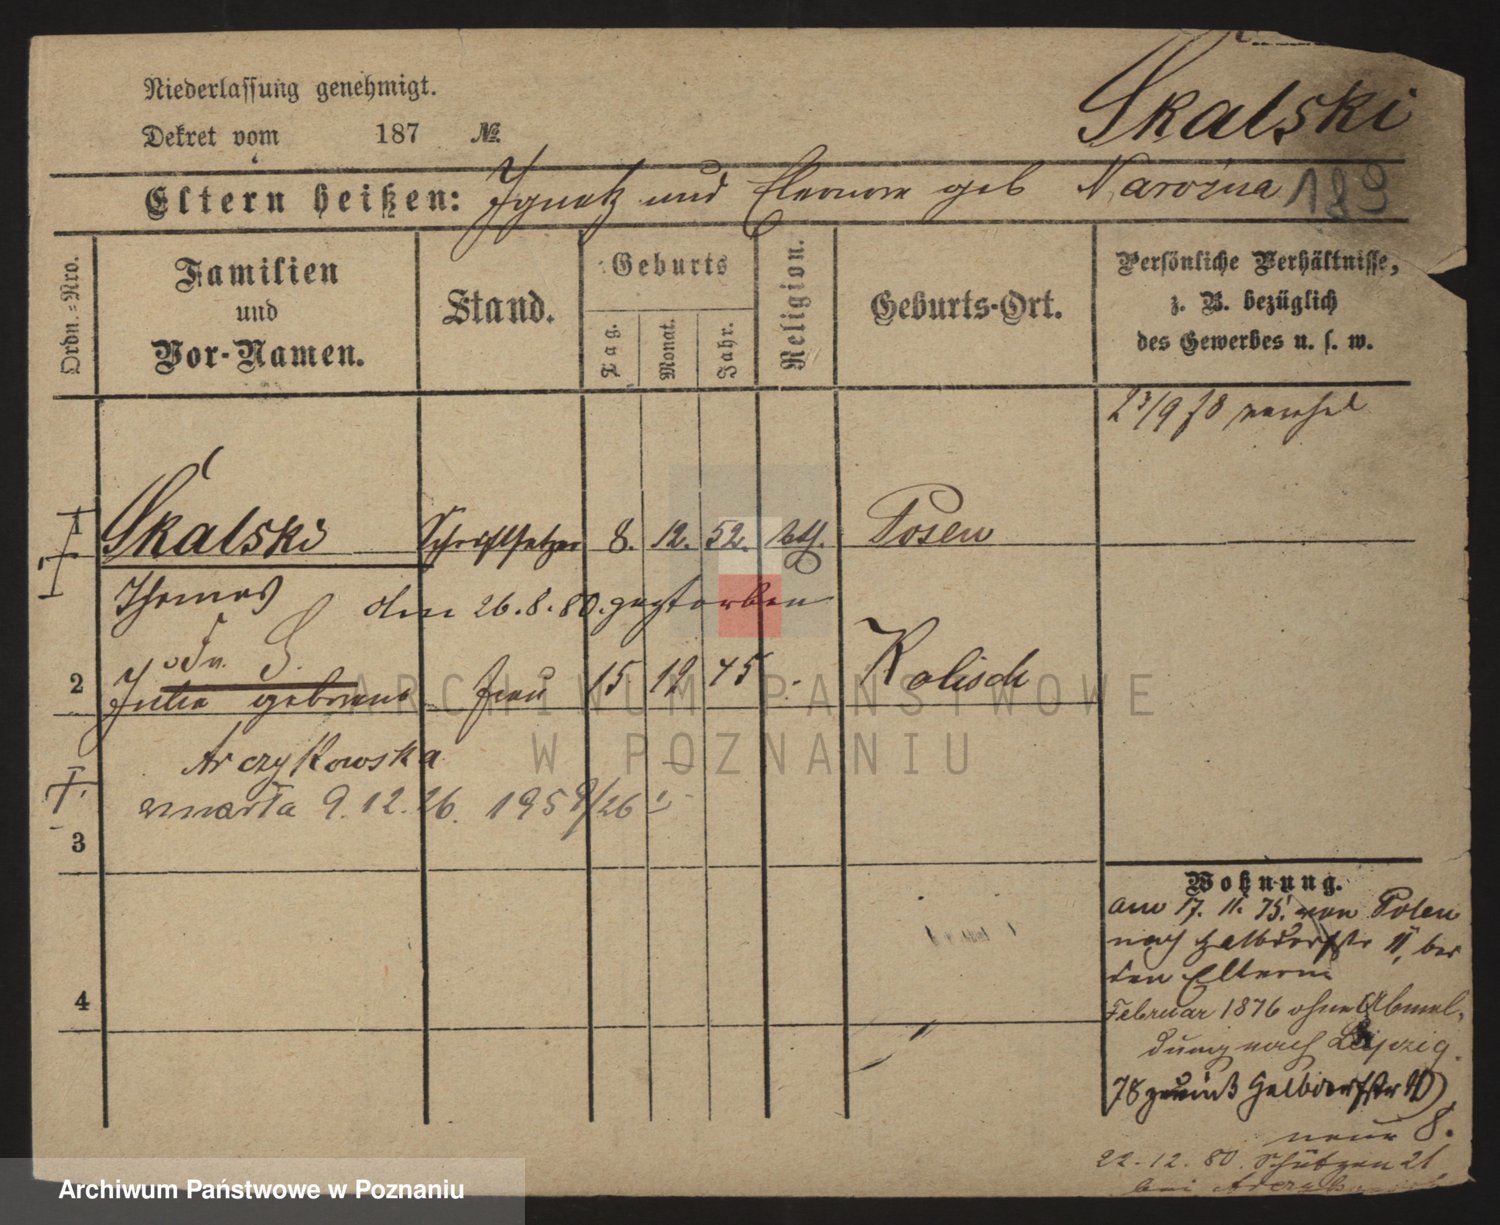 Niederlassung genehmigt.
Skalski
Dekret vom 187 №
Eltern heißen: Ignatz und Eleonore geb Narożna 189
Ordn.=Nro.
Familien
und
Vor-Namen.
Stand.
Geburts
Tag.
Monat.
Jahr.
Religion.
Geburts-Ort.
Persönliche Verhältnisse,
z. B. bezüglich
des Gewerbes u. s. w.
23/9 78
1 Skalski Schriftsetzer 8. 12. 52. kth. Posen
Thomas den 26.8.80. gestorben
2 Julia geborene Frau 15 12 45 Kolisch
Arczykowska
zmarła 9.12.26. 1959/26
3
4
Wohnung.
am 17. 11. 75. von Posen
nach Halbdorfstr 11, bei
den Eltern
Februar 1876 ohne Abmel-
dung nach Leipzig.
78 zurück Halbdorfstr 10
neue 8.
22.12.80. Schützen 21
bei
ARCHIWUM PAŃSTWOWE
W POZNANIU
Archiwum Państwowe w Poznaniu